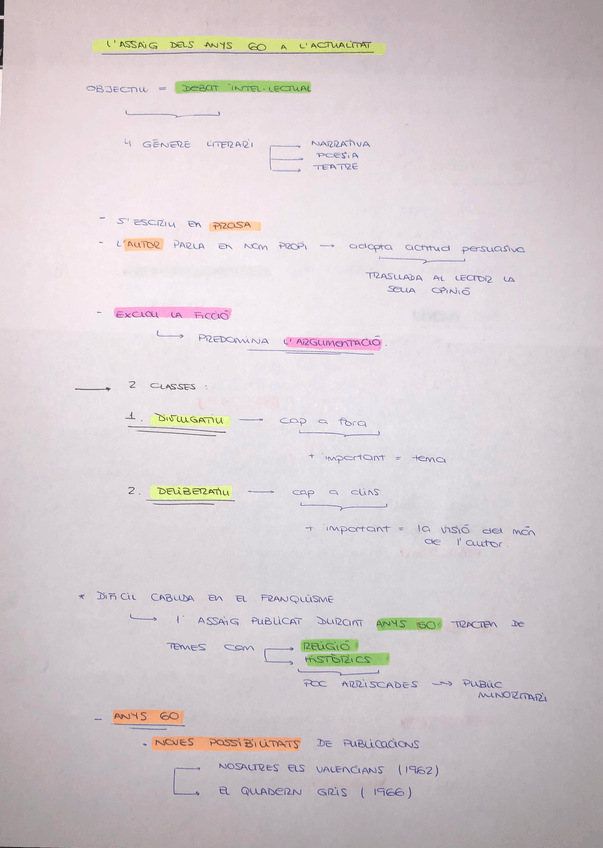 L'ASSAIG DELS ANYS 60 A L'ACTUALITAT
OBJECTIU = DEBAT INTEL·LECTUAL
4 GÈNERE LITERARI → NARRATIVA
→ POESIA
→ TEATRE
- S'ESCRIU EN PROSA
- L'AUTOR PARLA EN NOM PROPI → adopta actitud persuasiva
TRASLLADA AL LECTOR LA
SEUA OPINIÓ
- EXCLOU LA FICCIÓ
↳ PREDOMINA L'ARGUMENTACIÓ.
→ 2 CLASSES:
1. DIVULGATIU — cap a fora
+ important = tema
2. DELIBERATIU — cap a dins
+ important = la visió del món
de l'autor.
* DIFÍCIL CABUDA EN EL FRANQUISME
↳ 1' ASSAIG PUBLICAT DURANT ANYS 50 TRACTEN DE
TEMES COM → RELIGIÓ
→ HISTÒRICS
POC ARRISCADES → PUBLIC
MINORITARI
- ANYS 60
· NOVES POSSIBILITATS DE PUBLICACIONS
→ NOSALTRES ELS VALENCIANS (1962)
→ EL QUADERN GRIS (1966)